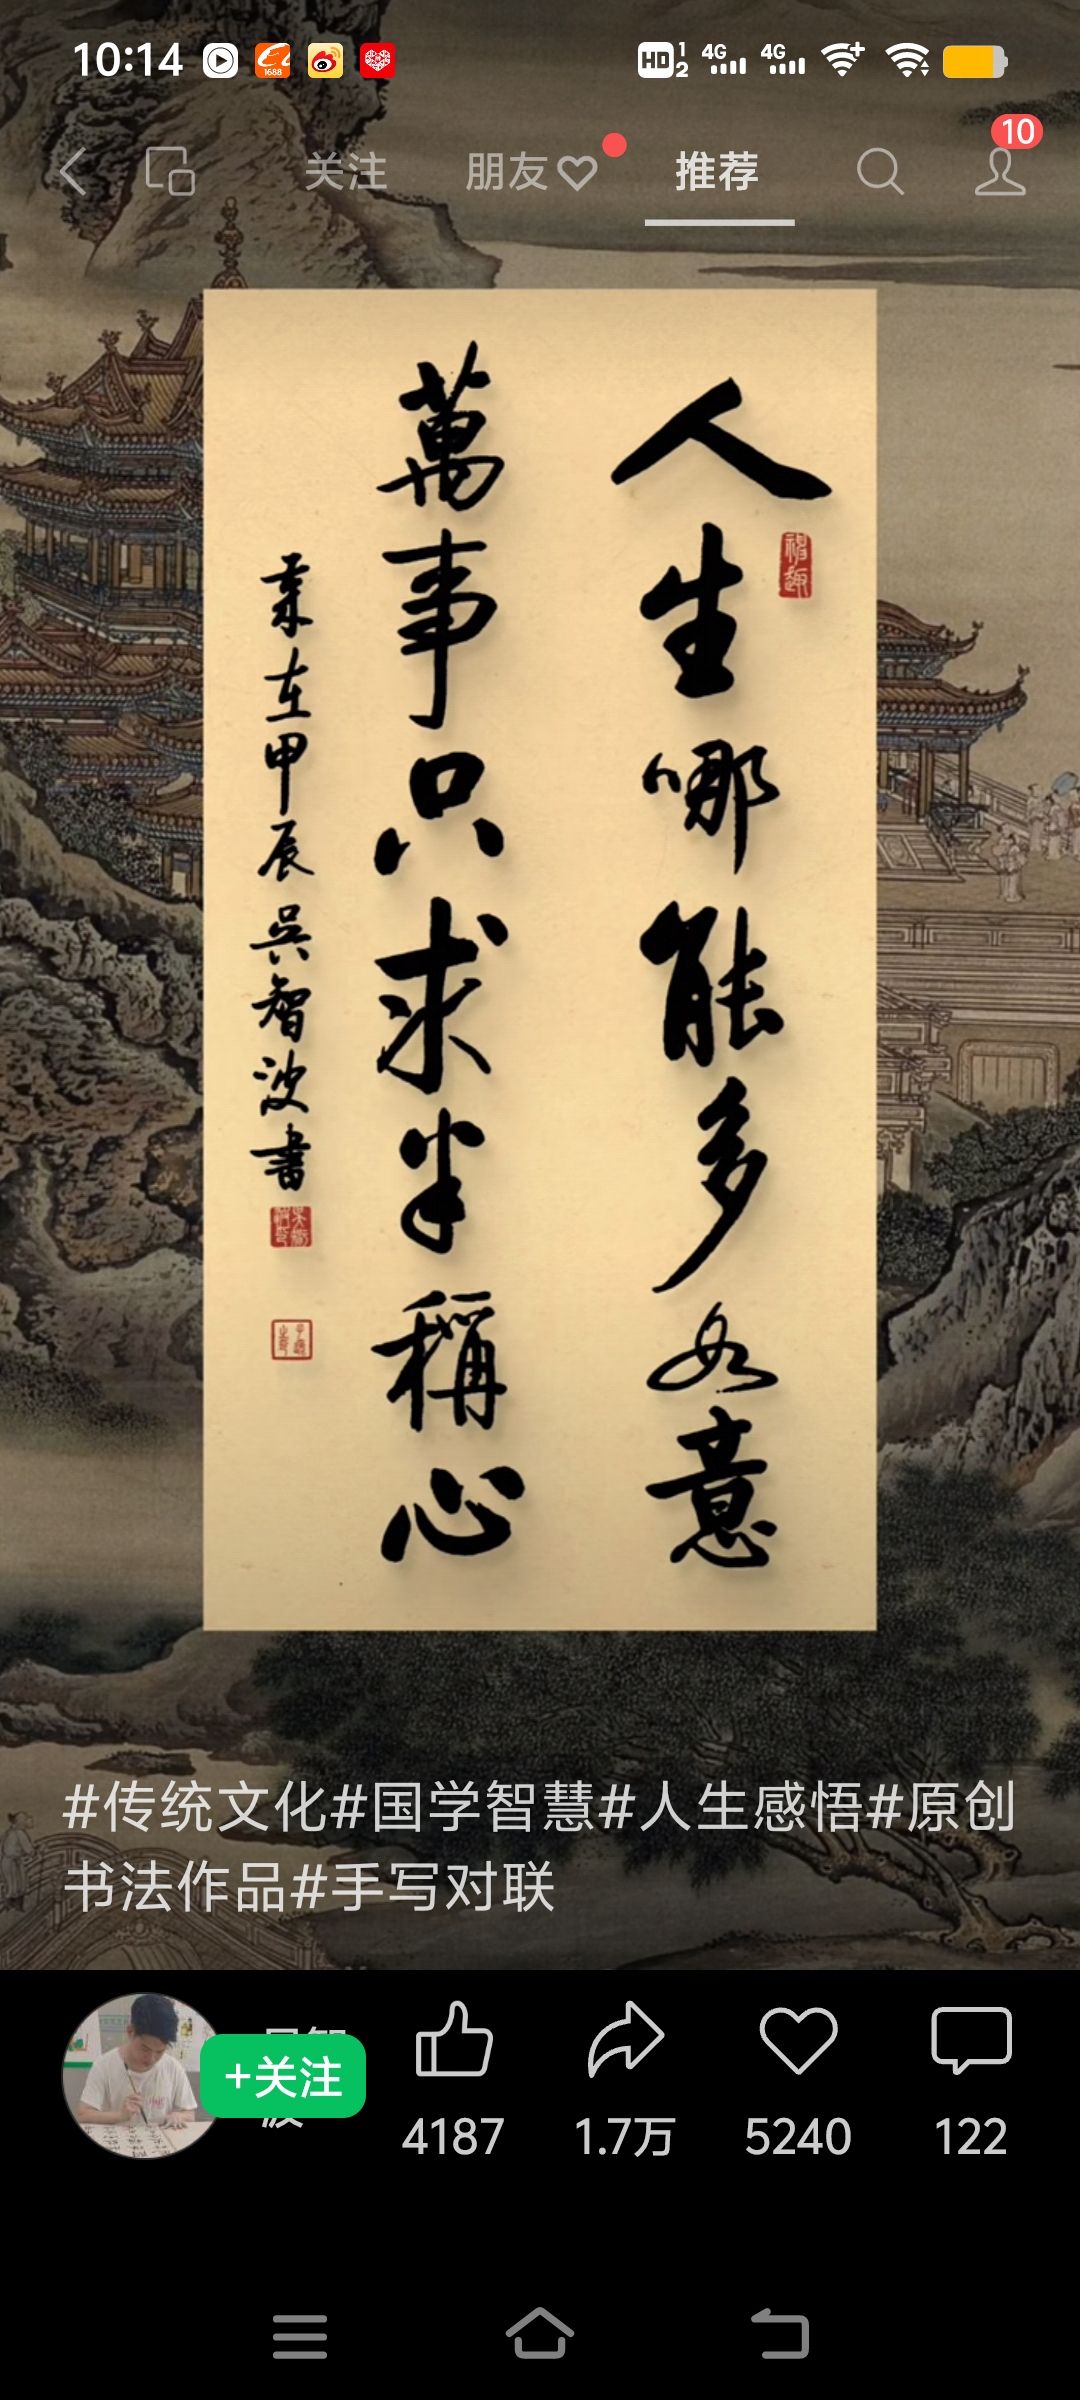 10:14
1688
HD 1 2 4G 4G
关注 朋友 推荐 10
人生哪能多如意
萬事只求半稱心
甲辰吴智波書
#传统文化#国学智慧#人生感悟#原创
书法作品#手写对联
+关注
4187 1.7万 5240 122